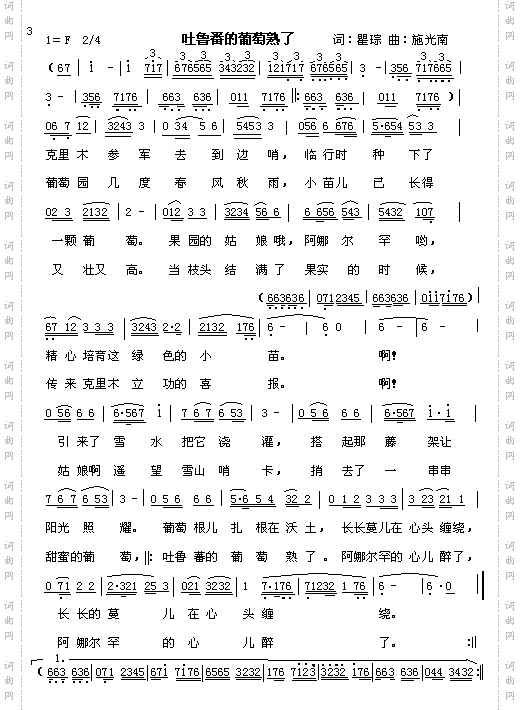 3
1= F 2/4 吐鲁番的葡萄熟了 词：瞿琮 曲：施光南
( 67 | i - | i - | 717 | 676565 | 343232 | 121717 | 676565 | 3 - | 356 | 717665 |
3 - | 356 7176 | 663 636 | 011 7176 |: 663 636 | 011 7176 )
06 7 12 | 3243 3 | 0 34 5 6 | 5453 3 | 056 6 676 | 5·654 53 3 |
克里木 参军 去 到边哨， 临行时 种 下了
葡萄园 几度 春 风秋雨， 小苗儿 已 长得
02 3 2132 | 2 - | 012 3 3 | 3234 56 6 | 6 656 543 | 5432 107 |
一颗葡 萄。 果园的姑 娘哦， 阿娜尔罕 哟，
又 壮又 高。 当枝头结 满了果实的时 候，
( 663636 | 0712345 | 663636 | 0ii7i76 )
67 12 3 3 3 | 3243 2·2 | 2132 176 | 6 - | 6 0 | 6 - | 6 - |
精心培育这绿 色的小 苗。 啊！
传来克里木立 功的喜 报。 啊！
0 56 6 6 | 6·567 i | 7 6 7 6 53 | 3 - | 0 5 6 6 6 | 6·567 i·i |
引来了雪 水 把它浇 灌， 搭起那藤 架让
姑娘啊遥 望 雪山哨 卡， 捎去了一 串串
7 6 7 6 53 | 3 - | 0 5 6 6 6 | 5·6 5 4 32 2 | 0 1 2 3 3 3 | 3 23 21 1 |
阳光照 耀。 葡萄根儿扎 根在沃 土， 长长蔓儿在心头 缠绕，
甜蜜的葡 萄，|: 吐鲁番的葡 萄熟了。阿娜尔罕的心儿 醉了，
0 71 2 2 | 2·321 25 3 | 021 3232 | 1 7·176 | 71232 1 76 | 6 - | 6·0 |
长长的蔓 儿 在心 头缠 绕。
阿娜尔罕 的 心 儿醉 了。 :||
1.
( 663 636 | 071 2345 | 67i 7i76 | 6565 3232 | 176 7123 | 3232 176 | 663 636 | 044 3432 :||
词曲网
词曲网
词曲网
词曲网
词曲网
词曲网
词曲网
词曲网
词曲网
词曲网
词曲网
词曲网